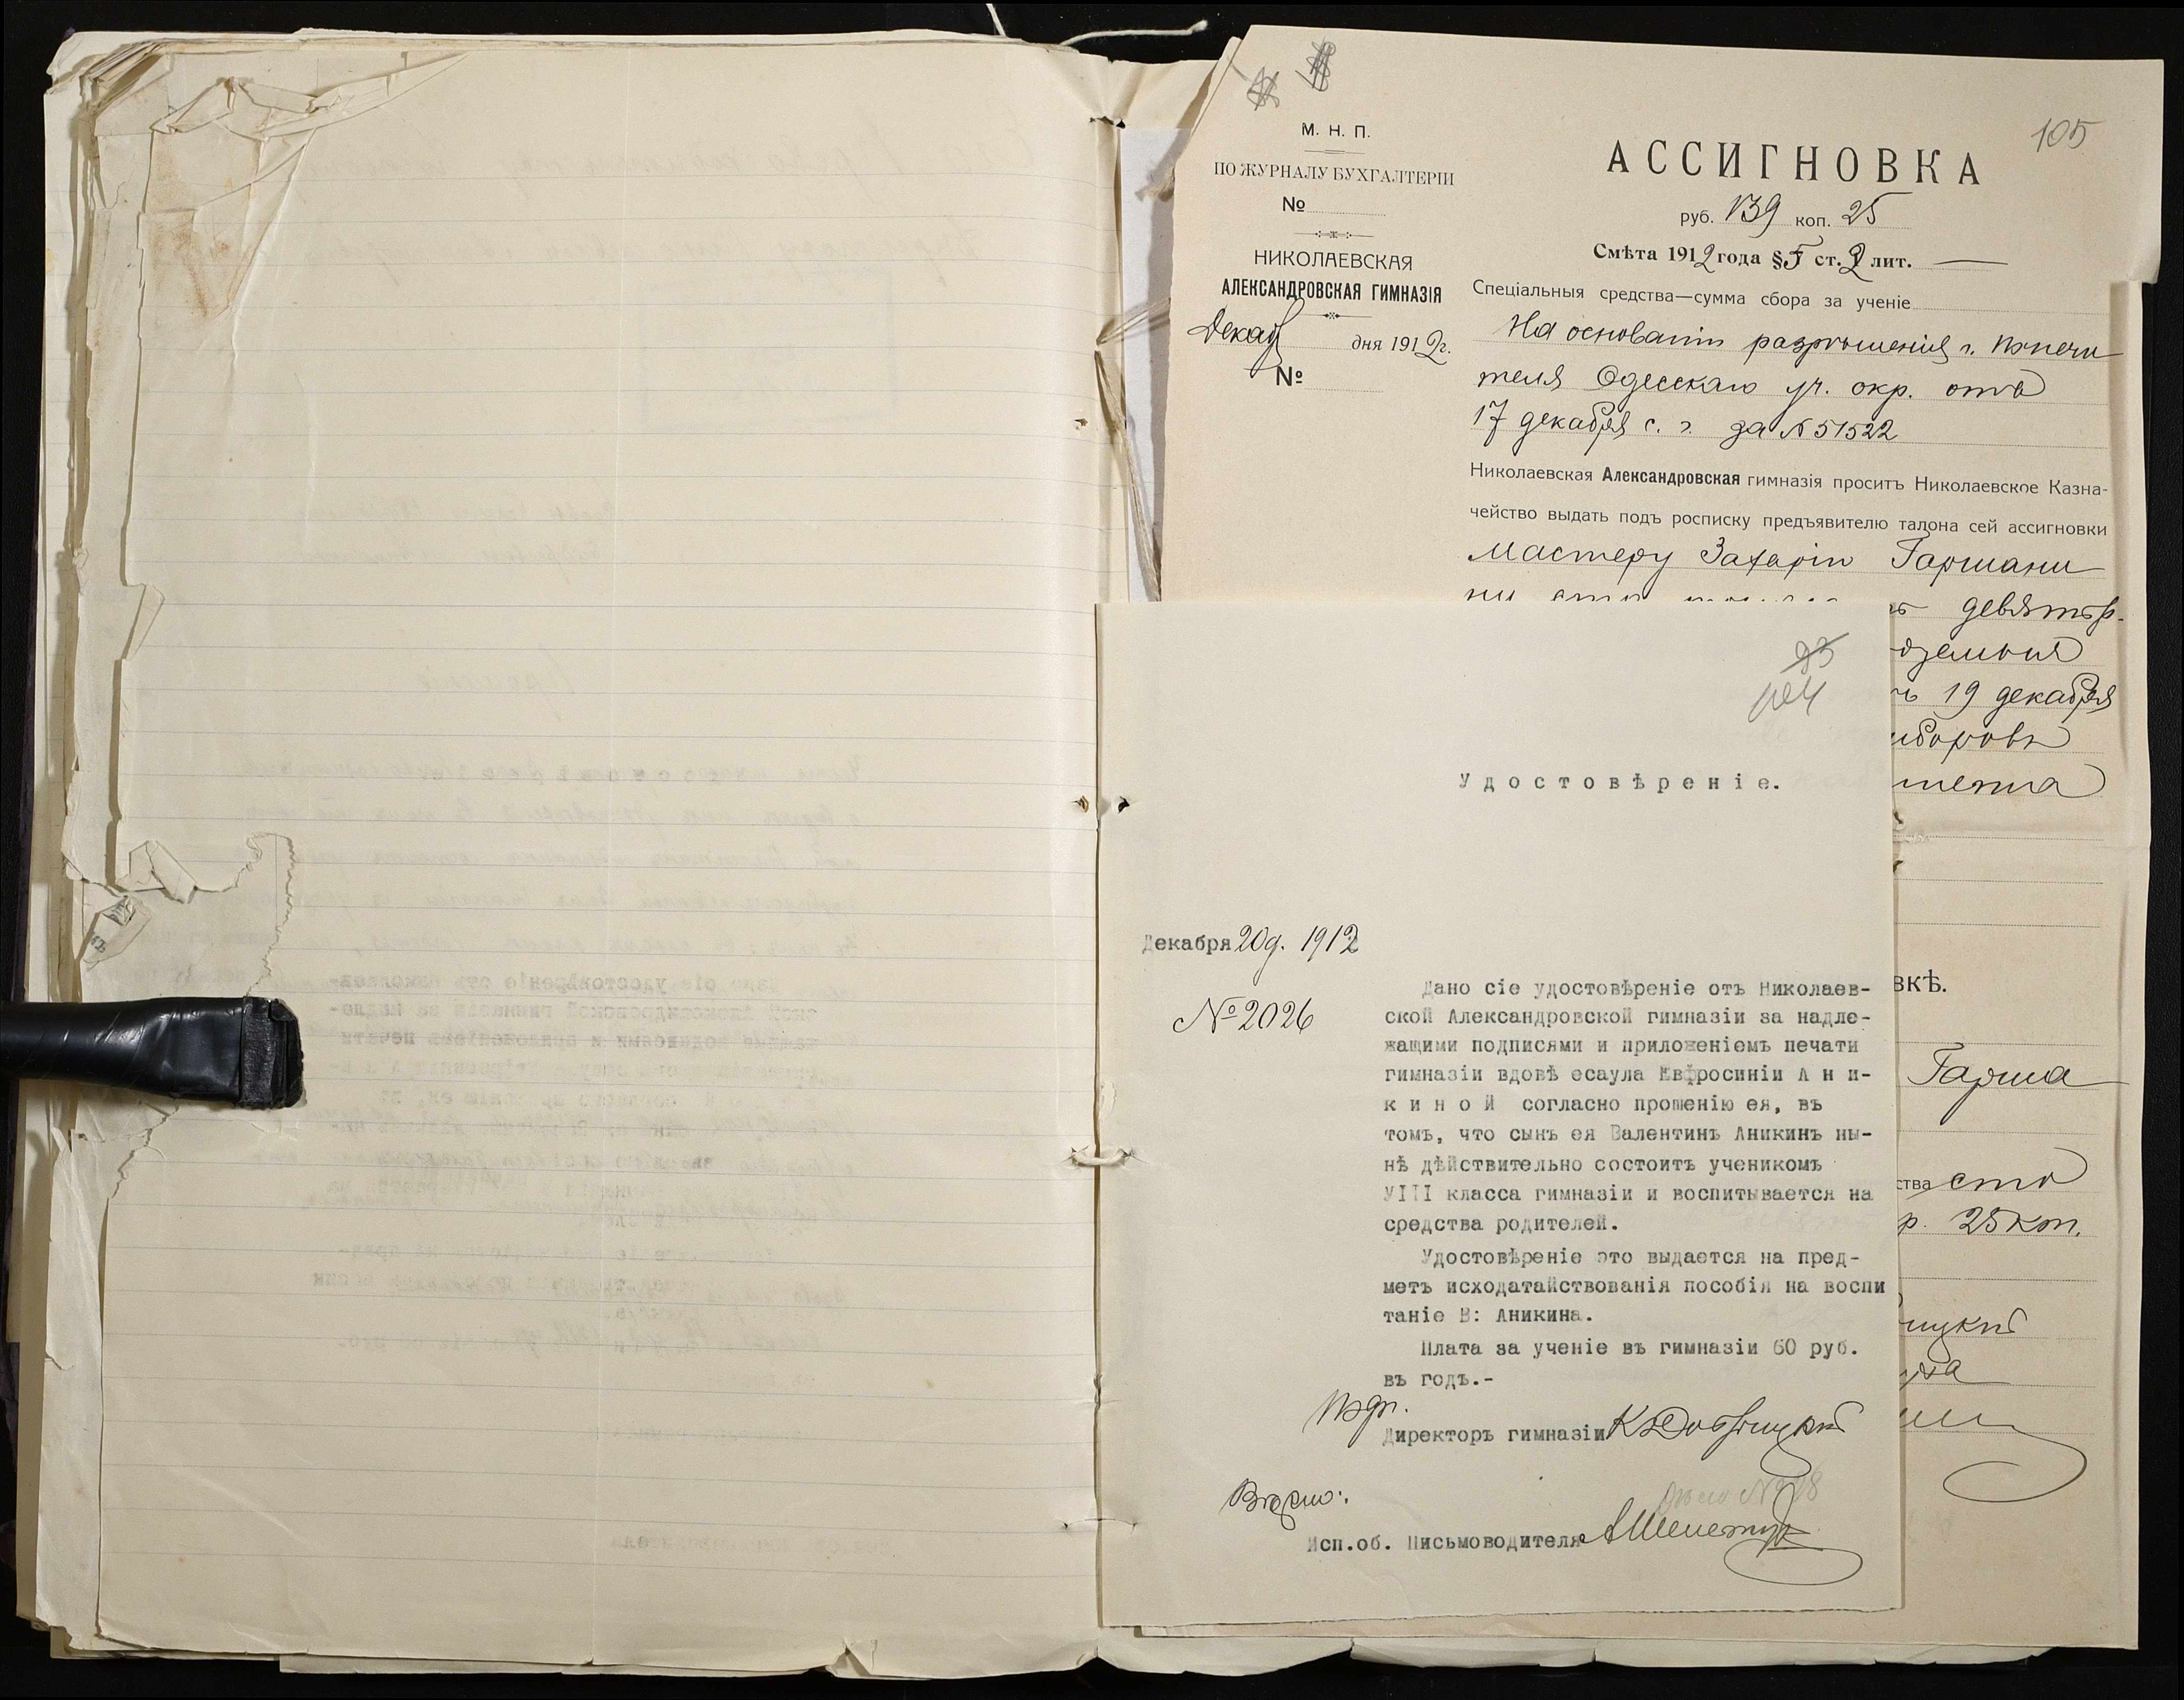 105
М. Н. П.
ПО ЖУРНАЛУ БУХГАЛТЕРІИ
№
НИКОЛАЕВСКАЯ
АЛЕКСАНДРОВСКАЯ ГИМНАЗІЯ
Декаб дня 1912 г.
№
АССИГНОВКА
руб. 139 коп. 25
Смѣта 1912 года § 5 ст. 2 лит.
Спеціальныя средства—сумма сбора за ученіе
На основаніи разрѣшенія г. Попечи
теля Одесскаго уч. окр. отъ
17 декабря с. г. за № 51522
Николаевская Александровская гимназія проситъ Николаевское Казна-
чейство выдать подъ росписку предъявителю талона сей ассигновки
Мастеру Захарію Гаршани
девять р.
19 декабря
вкѣ.
Гарша
ства сто
р. 25 коп.
93
104
Удостовѣреніе.
Декабря 20 д. 1912
№ 2026
Дано сіе удостовѣреніе отъ Николаев-
ской Александровской гимназіи за надле-
жащими подписями и приложеніемъ печати
гимназіи вдовѣ есаула Евфросиніи А н и-
к и н о й согласно прошенію ея, въ
томъ, что сынъ ея Валентинъ Аникинъ ны-
нѣ дѣйствительно состоитъ ученикомъ
УІІІ класса гимназіи и воспитывается на
средства родителей.
Удостовѣреніе это выдается на пред-
метъ исходатайствованія пособія на воспи
таніе В: Аникина.
Плата за ученіе въ гимназіи 60 руб.
въ годъ.-
Подп.
Директоръ гимназіи
Вѣрно:
Исп.об. Письмоводителя